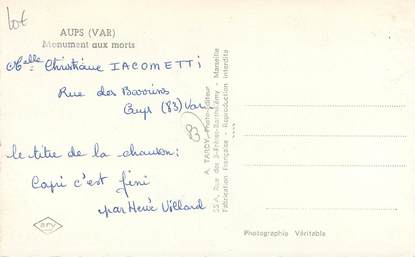 lot
AUPS (VAR)
Monument aux morts
Melle Christiane IACOMETTI
Rue des
Aups (83) Var
83
le titre de la chanson:
Capri c'est fini
par Hervé Villard
A. TARDY - Photo-Editeur
55A, Rue des 3-Frères-Barthélémy - Marseille
Fabrication Française - Reproduction interdite
Photographie Véritable